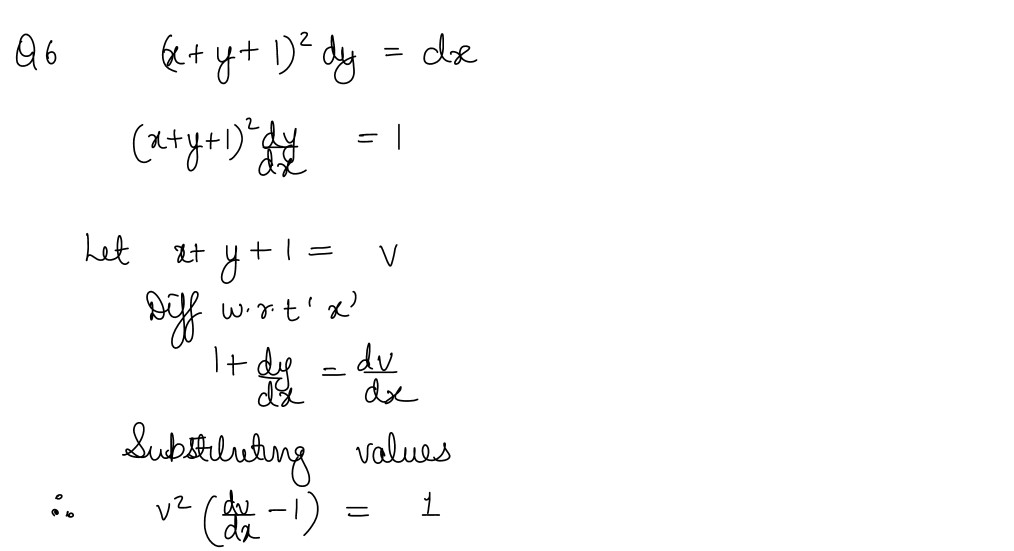 Q6 (x+y+1)² dy = dx
(x+y+1)² dy/dx = 1
Let x+y+1 = v
Diff w.r.t 'x'
1+ dy/dx = dv/dx
Substituting values
∴ v² (dv/dx -1) = 1